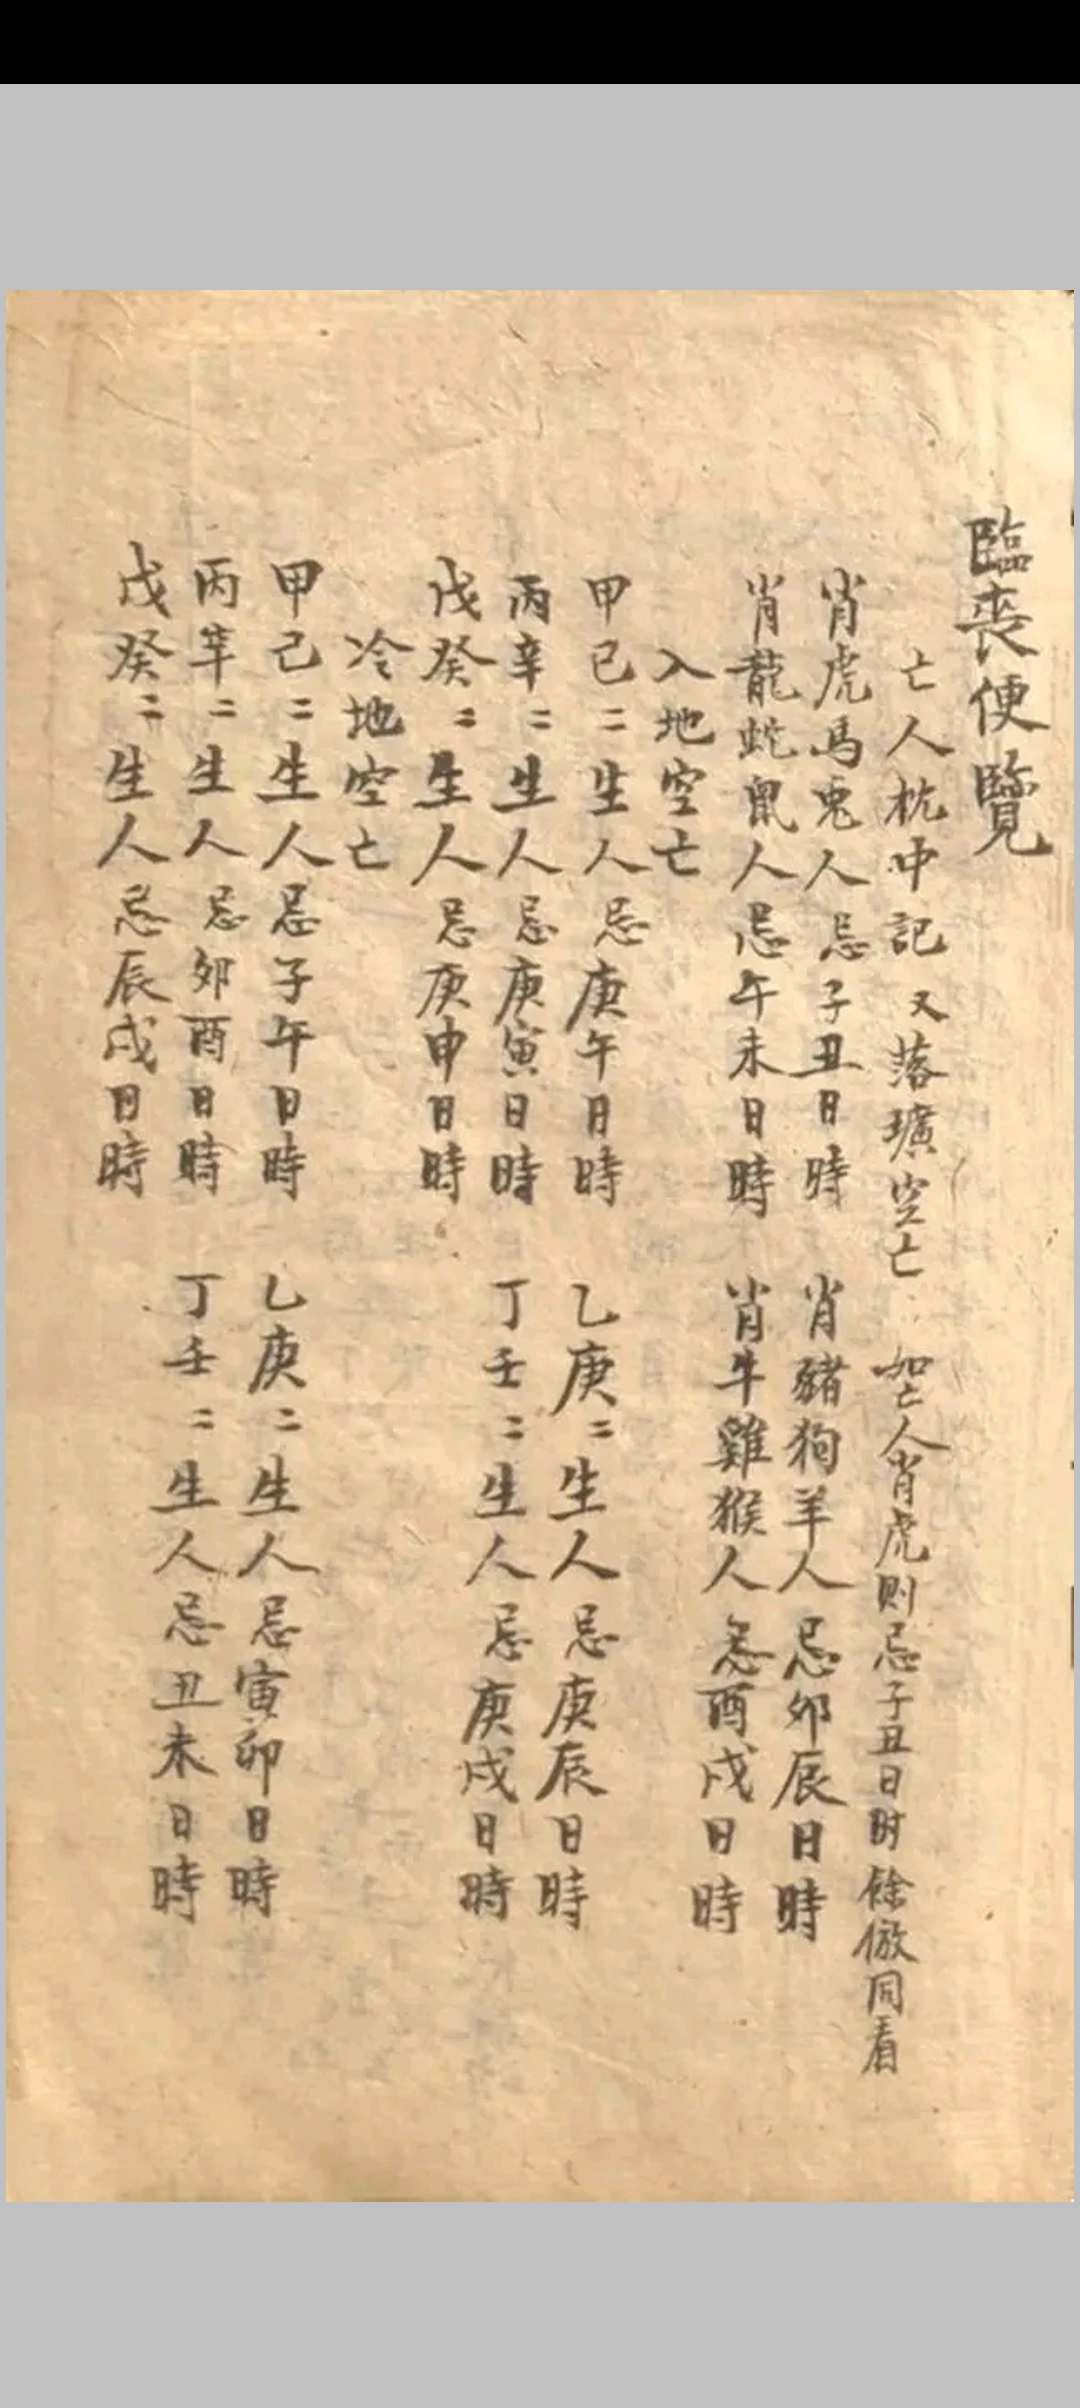 臨喪便覽
亡人枕中記 又落壙空亡 如亡人肖虎则忌子丑日时餘倣同看
肖虎馬兎人忌子丑日時 肖豬狗羊人忌卯辰日時
肖龍蛇鼠人忌午未日時 肖牛雞猴人忌酉戌日時
入地空亡
甲己二生人忌庚午日時 乙庚二生人忌庚辰日時
丙辛二生人忌庚寅日時 丁壬二生人忌庚戌日時
戊癸二生人忌庚申日時
冷地空亡
甲己二生人忌子午日時 乙庚二生人忌寅卯日時
丙辛二生人忌卯酉日時 丁壬二生人忌丑未日時
戊癸二生人忌辰戌日時